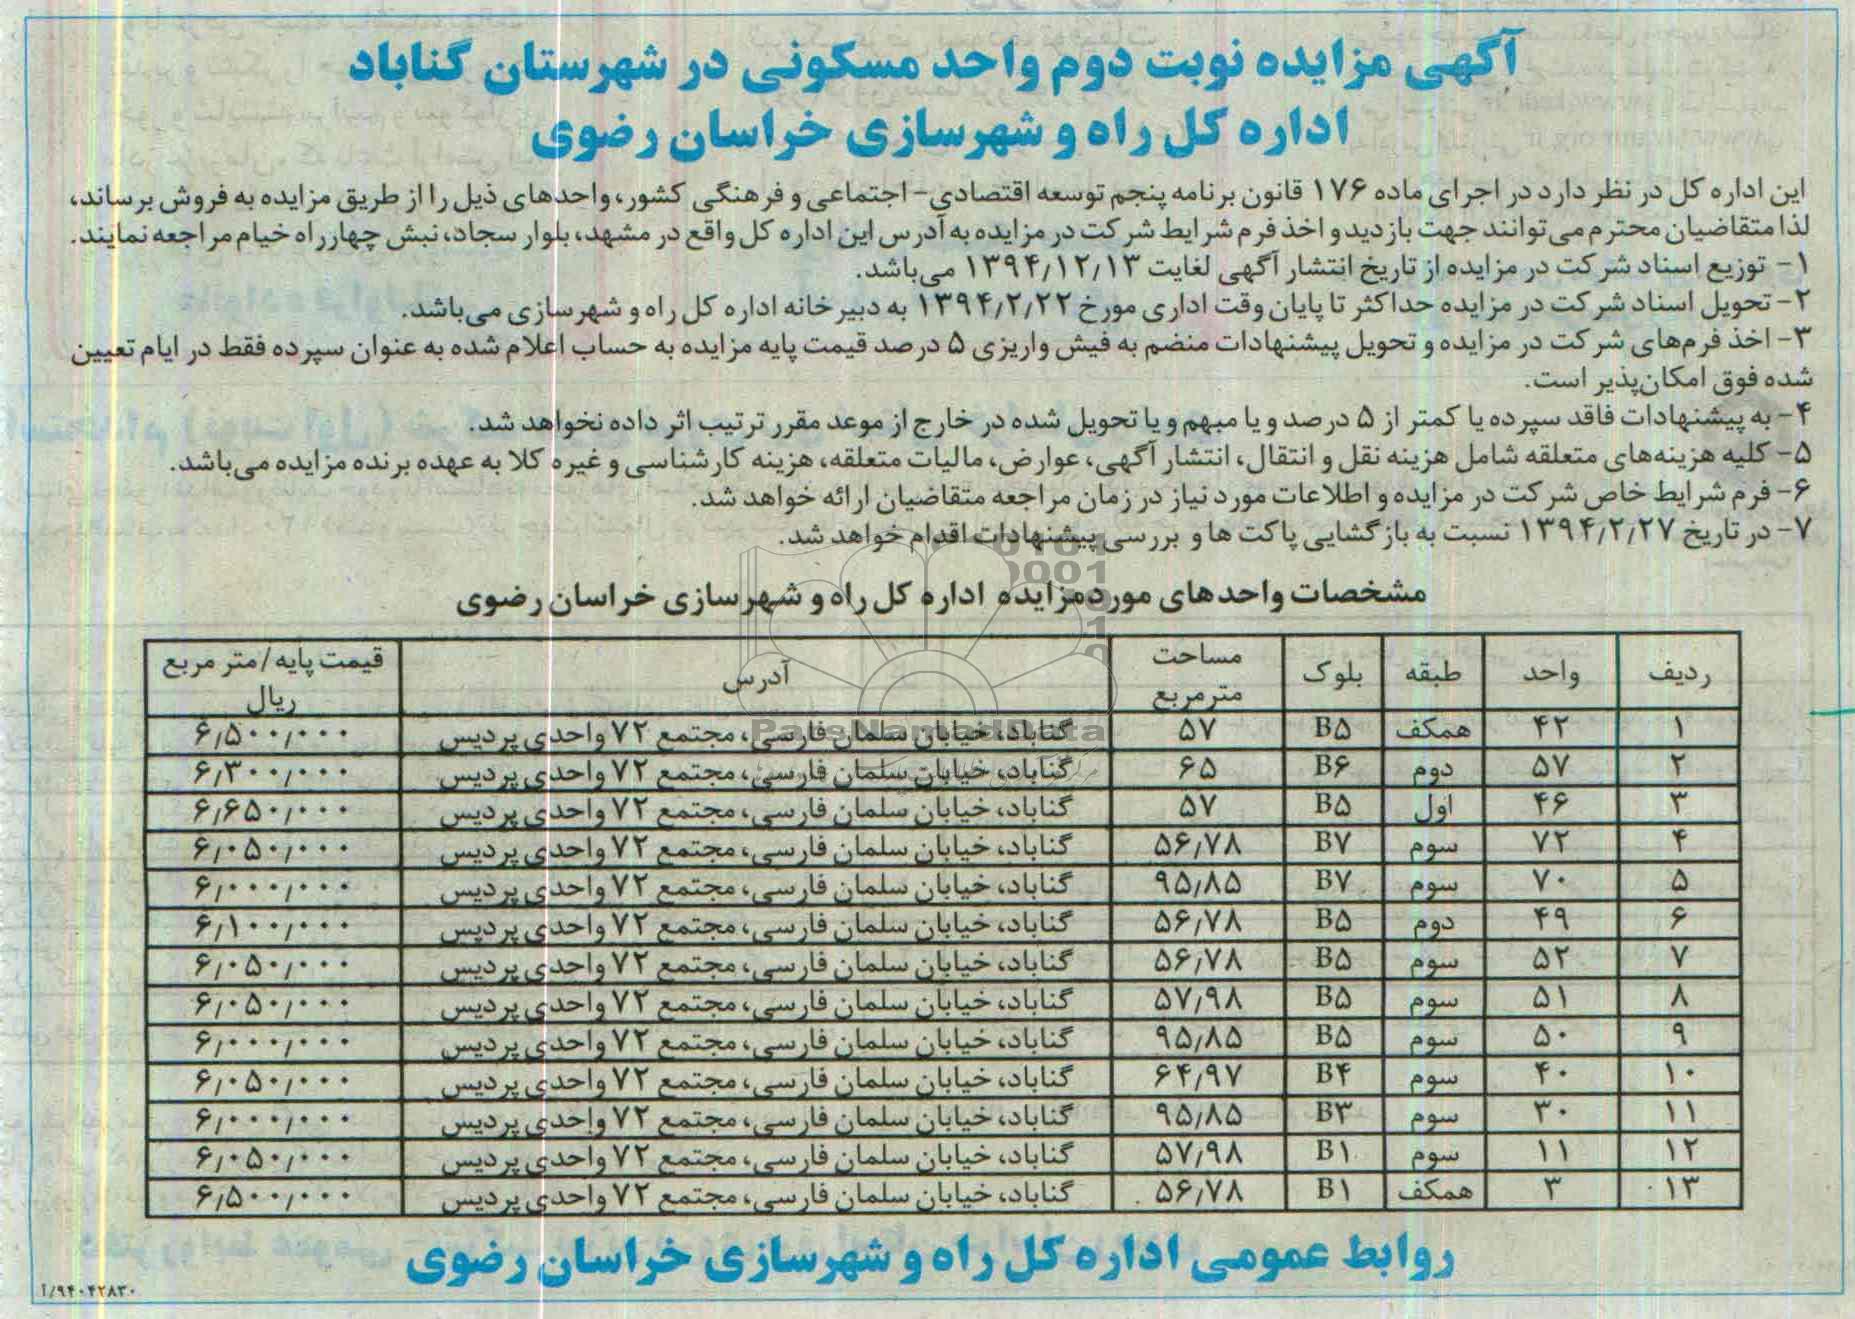 آگهی مزایده نوبت دوم واحد مسکونی در شهرستان گناباد
اداره کل راه و شهرسازی خراسان رضوی
این اداره کل در نظر دارد در اجرای ماده ۱۷۶ قانون برنامه پنجم توسعه اقتصادی- اجتماعی و فرهنگی کشور، واحدهای ذیل را از طریق مزایده به فروش برساند،
لذا متقاضیان محترم می‌توانند جهت بازدید و اخذ فرم شرایط شرکت در مزایده به آدرس این اداره کل واقع در مشهد، بلوار سجاد، نبش چهارراه خیام مراجعه نمایند.
۱- توزیع اسناد شرکت در مزایده از تاریخ انتشار آگهی لغایت ۱۳۹۴٫۱۲٫۱۳ می‌باشد.
۲- تحویل اسناد شرکت در مزایده حداکثر تا پایان وقت اداری مورخ ۱۳۹۴٫۲٫۲۲ به دبیرخانه اداره کل راه و شهرسازی می‌باشد.
۳- اخذ فرم‌های شرکت در مزایده و تحویل پیشنهادات منضم به فیش واریزی ۵ درصد قیمت پایه مزایده به حساب اعلام شده به عنوان سپرده فقط در ایام تعیین
شده فوق امکان‌پذیر است.
۴- به پیشنهادات فاقد سپرده یا کمتر از ۵ درصد و یا مبهم و یا تحویل شده در خارج از موعد مقرر ترتیب اثر داده نخواهد شد.
۵- کلیه هزینه‌های متعلقه شامل هزینه نقل و انتقال، انتشار آگهی، عوارض، مالیات متعلقه، هزینه کارشناسی و غیره کلا به عهده برنده مزایده می‌باشد.
۶- فرم شرایط خاص شرکت در مزایده و اطلاعات مورد نیاز در زمان مراجعه متقاضیان ارائه خواهد شد.
۷- در تاریخ ۱۳۹۴٫۲٫۲۷ نسبت به بازگشایی پاکت ها و بررسی پیشنهادات اقدام خواهد شد.
مشخصات واحدهای مورد مزایده اداره کل راه و شهرسازی خراسان رضوی
ردیف واحد طبقه بلوک مساحت مترمربع آدرس قیمت پایه/متر مربع ریال
۱ ۴۲ همکف B۵ ۵۷ گناباد، خیابان سلمان فارسی، مجتمع ۷۲ واحدی پردیس ۶٫۵۰۰٫۰۰۰
۲ ۵۷ دوم B۶ ۶۵ گناباد، خیابان سلمان فارسی، مجتمع ۷۲ واحدی پردیس ۶٫۳۰۰٫۰۰۰
۳ ۴۶ اول B۵ ۵۷ گناباد، خیابان سلمان فارسی، مجتمع ۷۲ واحدی پردیس ۶٫۶۵۰٫۰۰۰
۴ ۷۲ سوم B۷ ۵۶٫۷۸ گناباد، خیابان سلمان فارسی، مجتمع ۷۲ واحدی پردیس ۶٫۰۵۰٫۰۰۰
۵ ۷۰ سوم B۷ ۹۵٫۸۵ گناباد، خیابان سلمان فارسی، مجتمع ۷۲ واحدی پردیس ۶٫۰۰۰٫۰۰۰
۶ ۴۹ دوم B۵ ۵۶٫۷۸ گناباد، خیابان سلمان فارسی، مجتمع ۷۲ واحدی پردیس ۶٫۱۰۰٫۰۰۰
۷ ۵۲ سوم B۵ ۵۶٫۷۸ گناباد، خیابان سلمان فارسی، مجتمع ۷۲ واحدی پردیس ۶٫۰۵۰٫۰۰۰
۸ ۵۱ سوم B۵ ۵۷٫۹۸ گناباد، خیابان سلمان فارسی، مجتمع ۷۲ واحدی پردیس ۶٫۰۵۰٫۰۰۰
۹ ۵۰ سوم B۵ ۹۵٫۸۵ گناباد، خیابان سلمان فارسی، مجتمع ۷۲ واحدی پردیس ۶٫۰۰۰٫۰۰۰
۱۰ ۴۰ سوم B۴ ۶۴٫۹۷ گناباد، خیابان سلمان فارسی، مجتمع ۷۲ واحدی پردیس ۶٫۰۵۰٫۰۰۰
۱۱ ۳۰ سوم B۳ ۹۵٫۸۵ گناباد، خیابان سلمان فارسی، مجتمع ۷۲ واحدی پردیس ۶٫۰۰۰٫۰۰۰
۱۲ ۱۱ سوم B۱ ۵۷٫۹۸ گناباد، خیابان سلمان فارسی، مجتمع ۷۲ واحدی پردیس ۶٫۰۵۰٫۰۰۰
۱۳ ۳ همکف B۱ ۵۶٫۷۸ گناباد، خیابان سلمان فارسی، مجتمع ۷۲ واحدی پردیس ۶٫۵۰۰٫۰۰۰
ParsNamadData
روابط عمومی اداره کل راه و شهرسازی خراسان رضوی
۹۴۰۴۲۸۳۰/آ